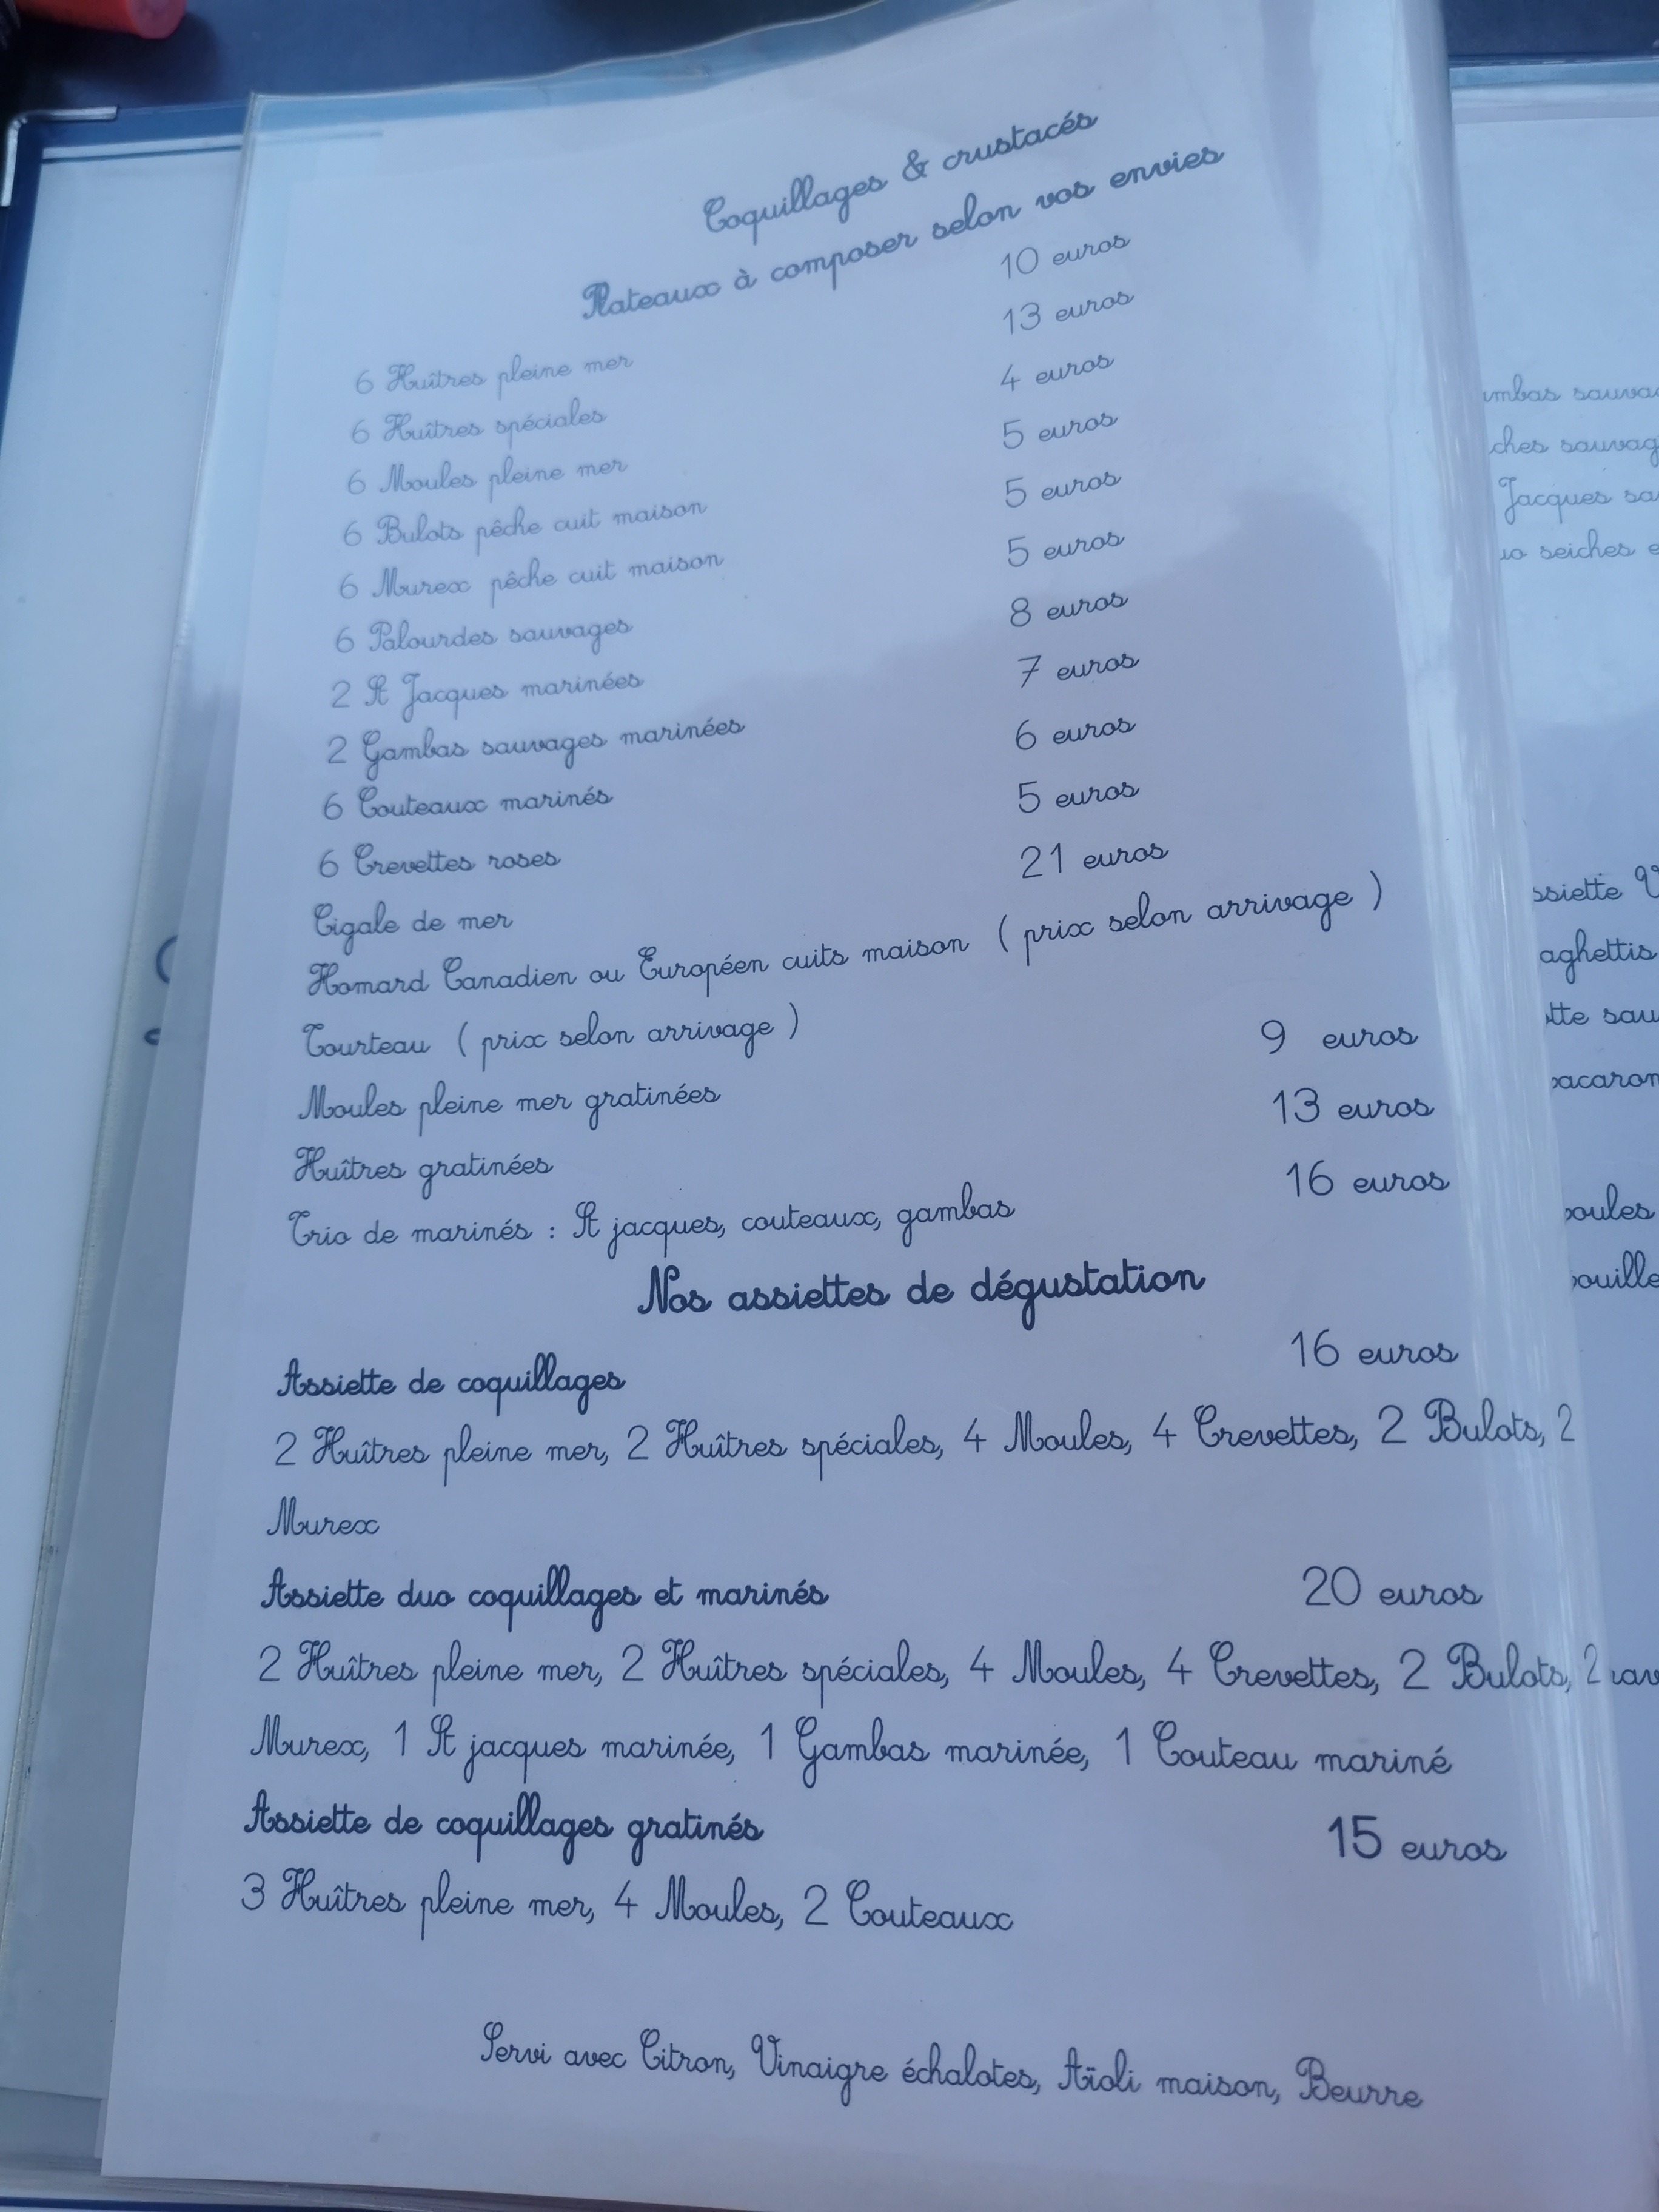 Coquillages & crustacés
Plateaux à composer selon vos envies
6 Huîtres pleine mer 10 euros
6 Huîtres spéciales 13 euros
6 Moules pleine mer 4 euros
6 Bulots pêche cuit maison 5 euros
6 Murex pêche cuit maison 5 euros
6 Palourdes sauvages 5 euros
2 St Jacques marinées 8 euros
2 Gambas sauvages marinées 7 euros
6 Couteaux marinés 6 euros
6 Crevettes roses 5 euros
Cigale de mer 21 euros
Homard Canadien ou Européen cuits maison ( prix selon arrivage )
Tourteau ( prix selon arrivage )
Moules pleine mer gratinées 9 euros
Huîtres gratinées 13 euros
Trio de marinés : St jacques, couteaux, gambas 16 euros
Nos assiettes de dégustation
Assiette de coquillages 16 euros
2 Huîtres pleine mer, 2 Huîtres spéciales, 4 Moules, 4 Crevettes, 2 Bulots, 2
Murex
Assiette duo coquillages et marinés 20 euros
2 Huîtres pleine mer, 2 Huîtres spéciales, 4 Moules, 4 Crevettes, 2 Bulots, 2
Murex, 1 St jacques marinée, 1 Gambas marinée, 1 Couteau mariné
Assiette de coquillages gratinés 15 euros
3 Huîtres pleine mer, 4 Moules, 2 Couteaux
Servi avec Citron, Vinaigre échalotes, Aïoli maison, Beurre
Jacques
seiches